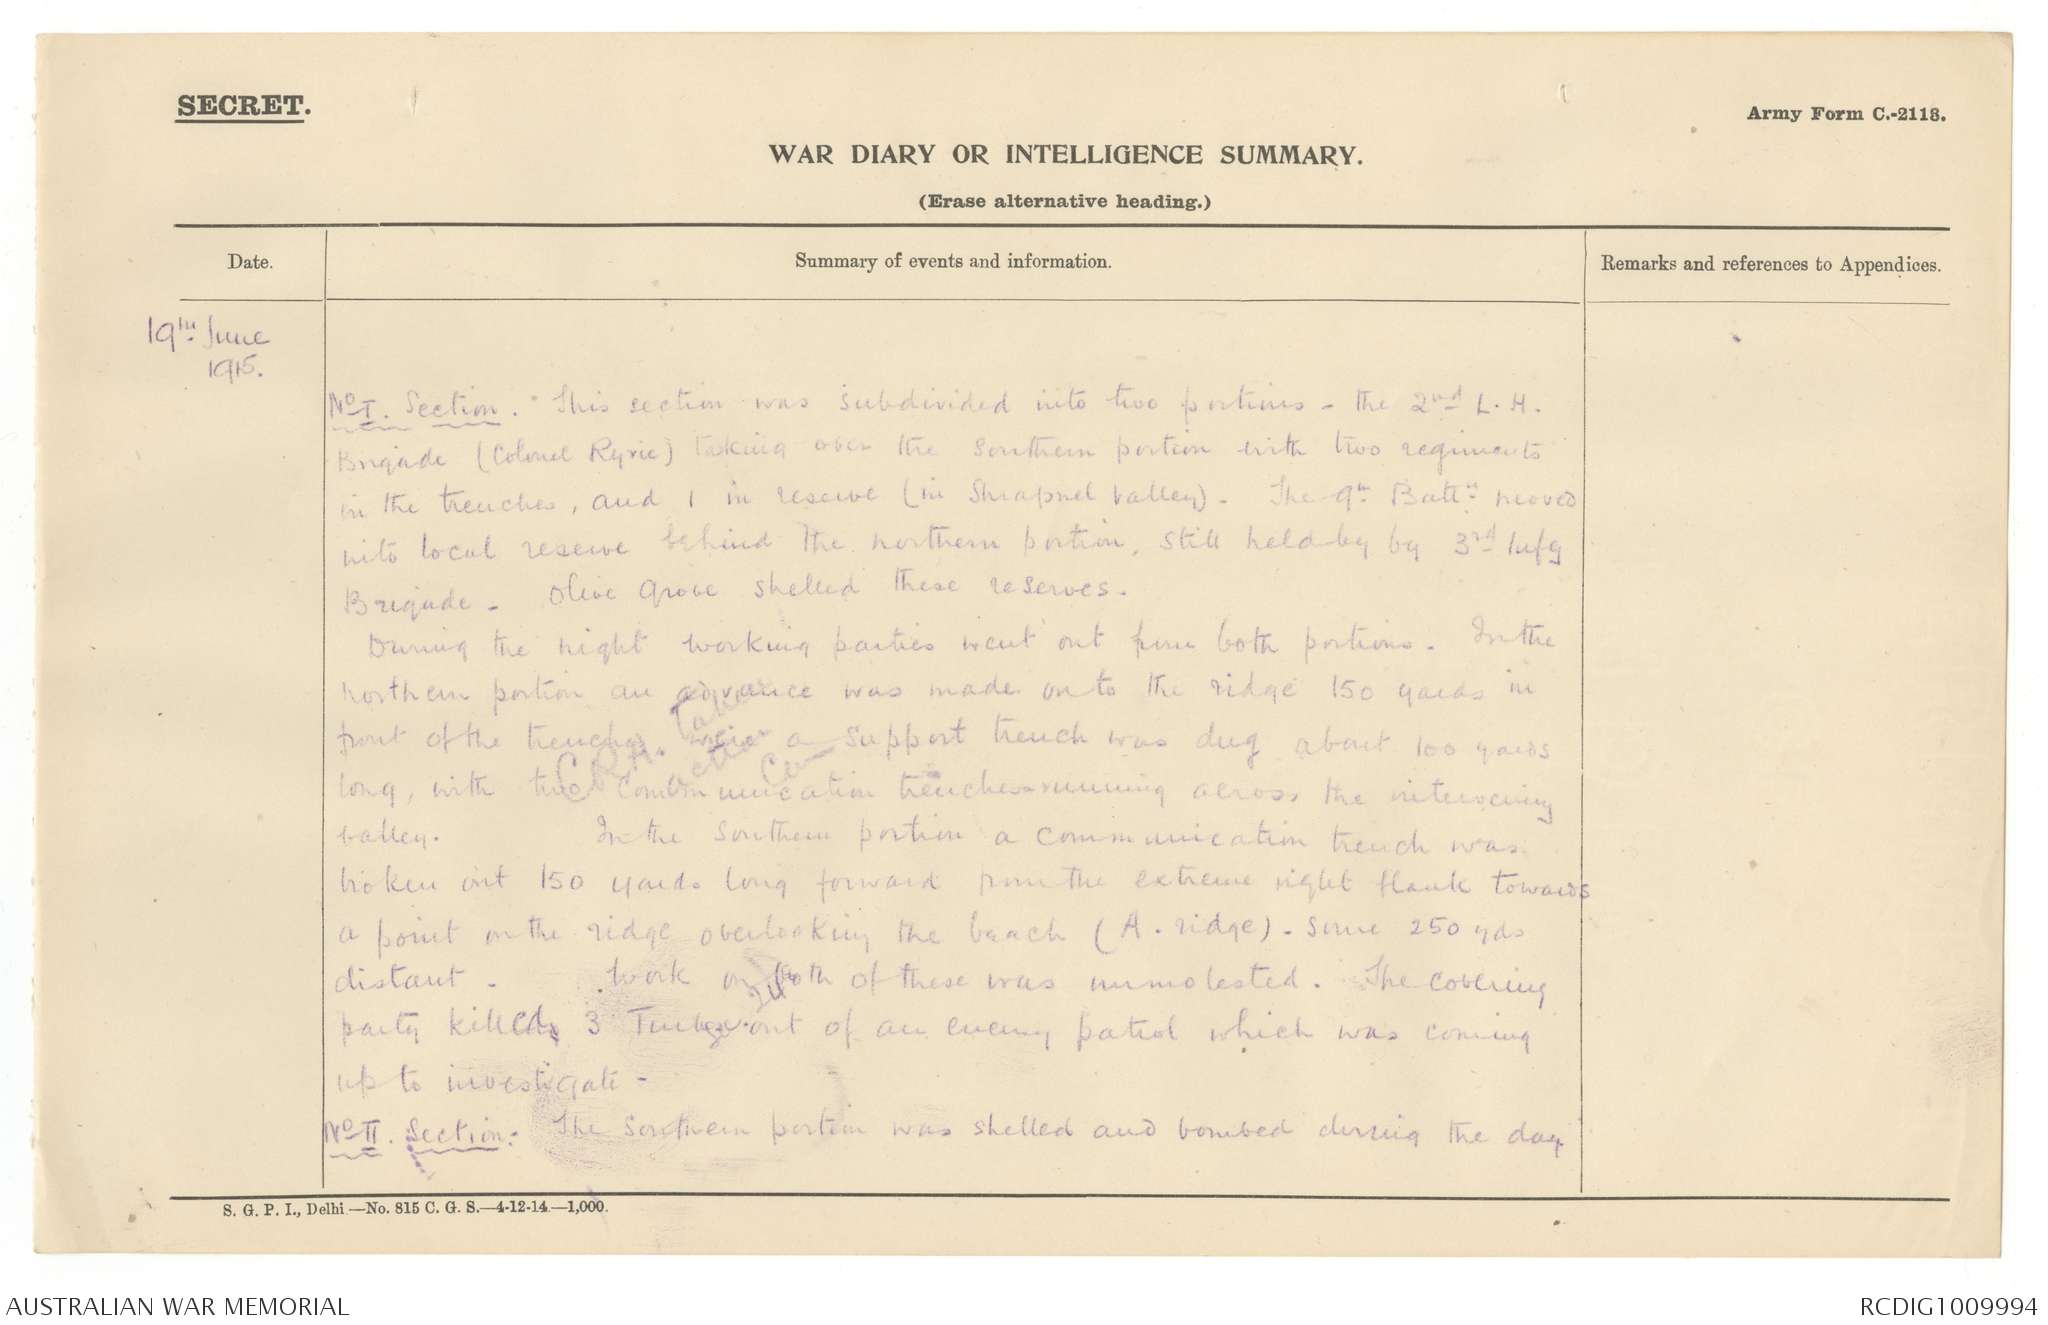 SECRET.
Army Form C.-2118.
WAR DIARY OR INTELLIGENCE SUMMARY.
(Erase alternative heading.)
Date.
Summary of events and information.
Remarks and references to Appendices.
19th June
1915.
No I. Section. This section was subdivided into two portions - the 2nd L. H.
Brigade (Colonel Ryrie) taking over the Southern portion with two regiments
in the trenches, and 1 in reserve (in Shrapnel valley). The 9th Battn moved
into local reserve behind the northern portion, still held by by 3rd Infy
Brigade - Olive Grove shelled these reserves.
During the night working parties went out from both portions. In the
northern portion an advance was made on to the ridge 150 yards in
front of the trenches. a support trench was dug about 100 yards
long, with two communication trenches running across the intervening
valley. In the Southern portion a communication trench was
broken out 150 yards long forward from the extreme right flank towards
a point on the ridge overlooking the beach (A. ridge) - some 250 yds
distant - Work on both of these was unmolested. The covering
party killed 3 Turks out of an enemy patrol which was coming
up to investigate -
No II. Section. The Southern portion was shelled and bombed during the day
S. G. P. I., Delhi.—No. 815 C. G. S.—4-12-14.—1,000.
AUSTRALIAN WAR MEMORIAL
RCDIG1009994